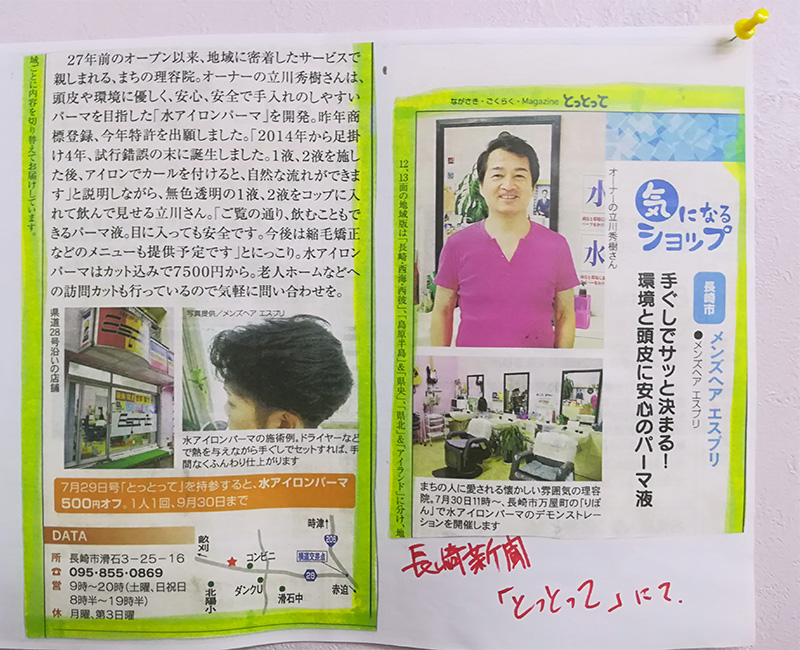 ながさき・ごくらく・Magazine とっとって
気になる
ショップ
長崎市
メンズヘア エスプリ
●メンズヘア エスプリ
手ぐしでサッと決まる！
環境と頭皮に安心のパーマ液
オーナーの立川秀樹さん
水
水
まちの人に愛される懐かしい雰囲気の理容
院。7月30日11時～、長崎市万屋町の「りぼ
ん」で水アイロンパーマのデモンストレー
ションを開催します
12、13面の地域版は「長崎・西海・西彼」、「島原半島」&「県央」、「県北」&「アイランド」に分け、地
域ごとに内容を切り替えてお届けしています。
27年前のオープン以来、地域に密着したサービスで
親しまれる、まちの理容院。オーナーの立川秀樹さんは、
頭皮や環境に優しく、安心、安全で手入れのしやすい
パーマを目指した「水アイロンパーマ」を開発。昨年商
標登録、今年特許を出願しました。「2014年から足掛
け4年、試行錯誤の末に誕生しました。1液、2液を施し
た後、アイロンでカールを付けると、自然な流れができま
す」と説明しながら、無色透明の1液、2液をコップに入
れて飲んで見せる立川さん。「ご覧の通り、飲むこともで
きるパーマ液。目に入っても安全です。今後は縮毛矯正
などのメニューも提供予定です」とにっこり。水アイロン
パーマはカット込みで7500円から。老人ホームなどへ
の訪問カットも行っているので気軽に問い合わせを。
県道28号沿いの店舗
写真提供／メンズヘア エスプリ
水アイロンパーマの施術例。ドライヤーなど
で熱を与えながら手ぐしでセットすれば、手
間なくふんわり仕上がります
7月29日号「とっとって」を持参すると、水アイロンパーマ
500円オフ。1人1回、9月30日まで
DATA
所 長崎市滑石3－25－16
☎ 095・855・0869
営 9時～20時（土曜、日祝日
8時半～19時半）
休 月曜、第3日曜
時津↑
206
畝刈
コンビニ
横道交差点
ダンクU
28
北陽小
滑石中
赤迫↓
長崎新聞
「とっとって」にて.